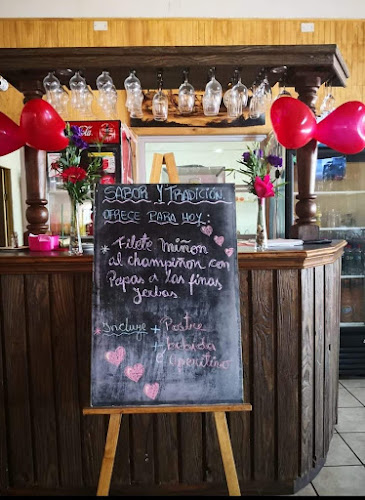 Coca-Cola
SABOR Y TRADICIÓN
OFRECE PARA HOY:
* Filete Miñón
al champiñon con
Papas a las finas
yerbas
* Incluye + Postre
+ bebida
o Aperitivo